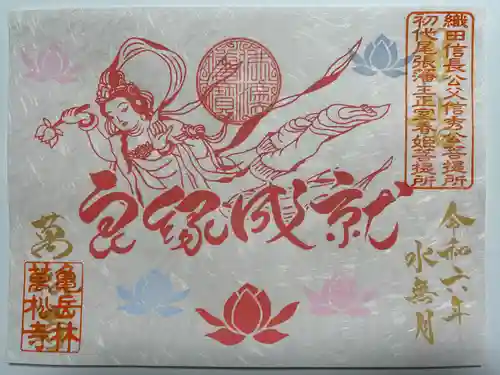 織田信長公父信秀公菩提所
初代尾張藩主正室春姫菩提所
良縁成就
令和六年
水無月
萬
龜岳林
萬松寺